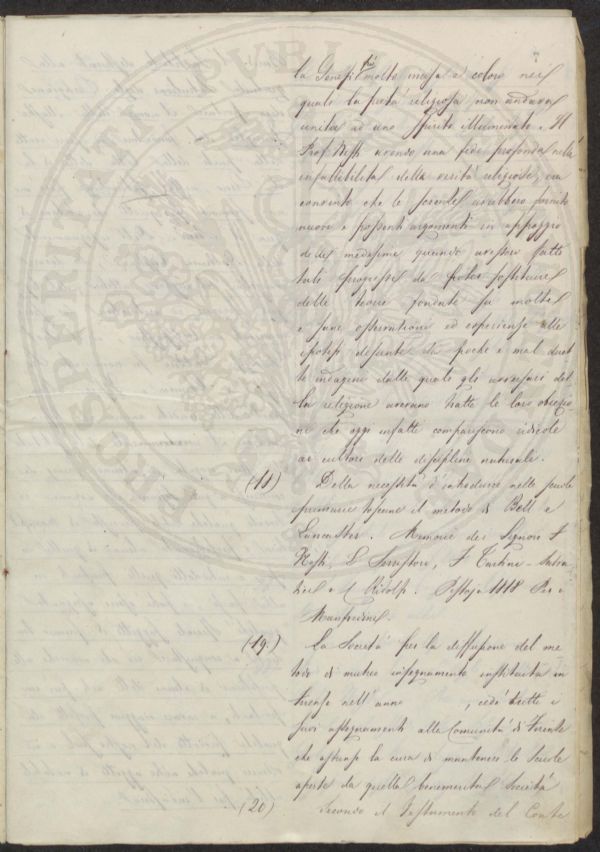 la Genesi fù molto incisa e coloro nei
quali la pietà religiosa non andava
unita ad uno spirito illuminato. Il
Prof. Nesti avendo una fede profonda nella
infallibilità della verità religiose, era
convinto che le scienze avrebbero fornito
nuovi e possenti argomenti in appoggio
delle medesime quando avessero fatto
tali progressi da poter sostituire
delle teorie fondate su molte
e sane osservazioni ed esperienze alle
ipotesi desunte da poche e mal dirette
indagini dalle quali gli avversari del
la religione avevano tratte le loro obiezio
ni che oggi infatti compariscono ridicole
ai cultori delle discipline naturali.
(18) Della necessità d'introdurre nelle scuole
primarie toscane il metodo di Bell e
Lancaster. Memorie dei Signori F
Nesti, L Serristori, F Tartini-Salva
tici e C Ridolfi. Pistoja 1818 Per i
Manfredini.
(19.) La Società per la diffusione del me
todo di mutuo insegnamento instituita in
Firenze nell'anno , cedé tutti i
suoi assegnamenti alla Comunità di Firenze
che assunse la cura di mantenere le Scuole
aperte da quella benemerita Società
(20) Secondo il Testamento del Conte
PROPERITATI PVBLICAE